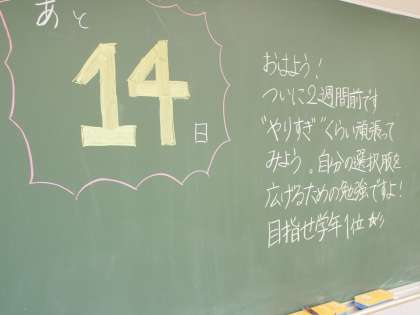 あと
14
日
おはよう！
ついに2週間前です
"やりすぎ"くらい頑張って
みよう。自分の選択肢を
広げるための勉強ですよ！
目指せ学年1位☆彡